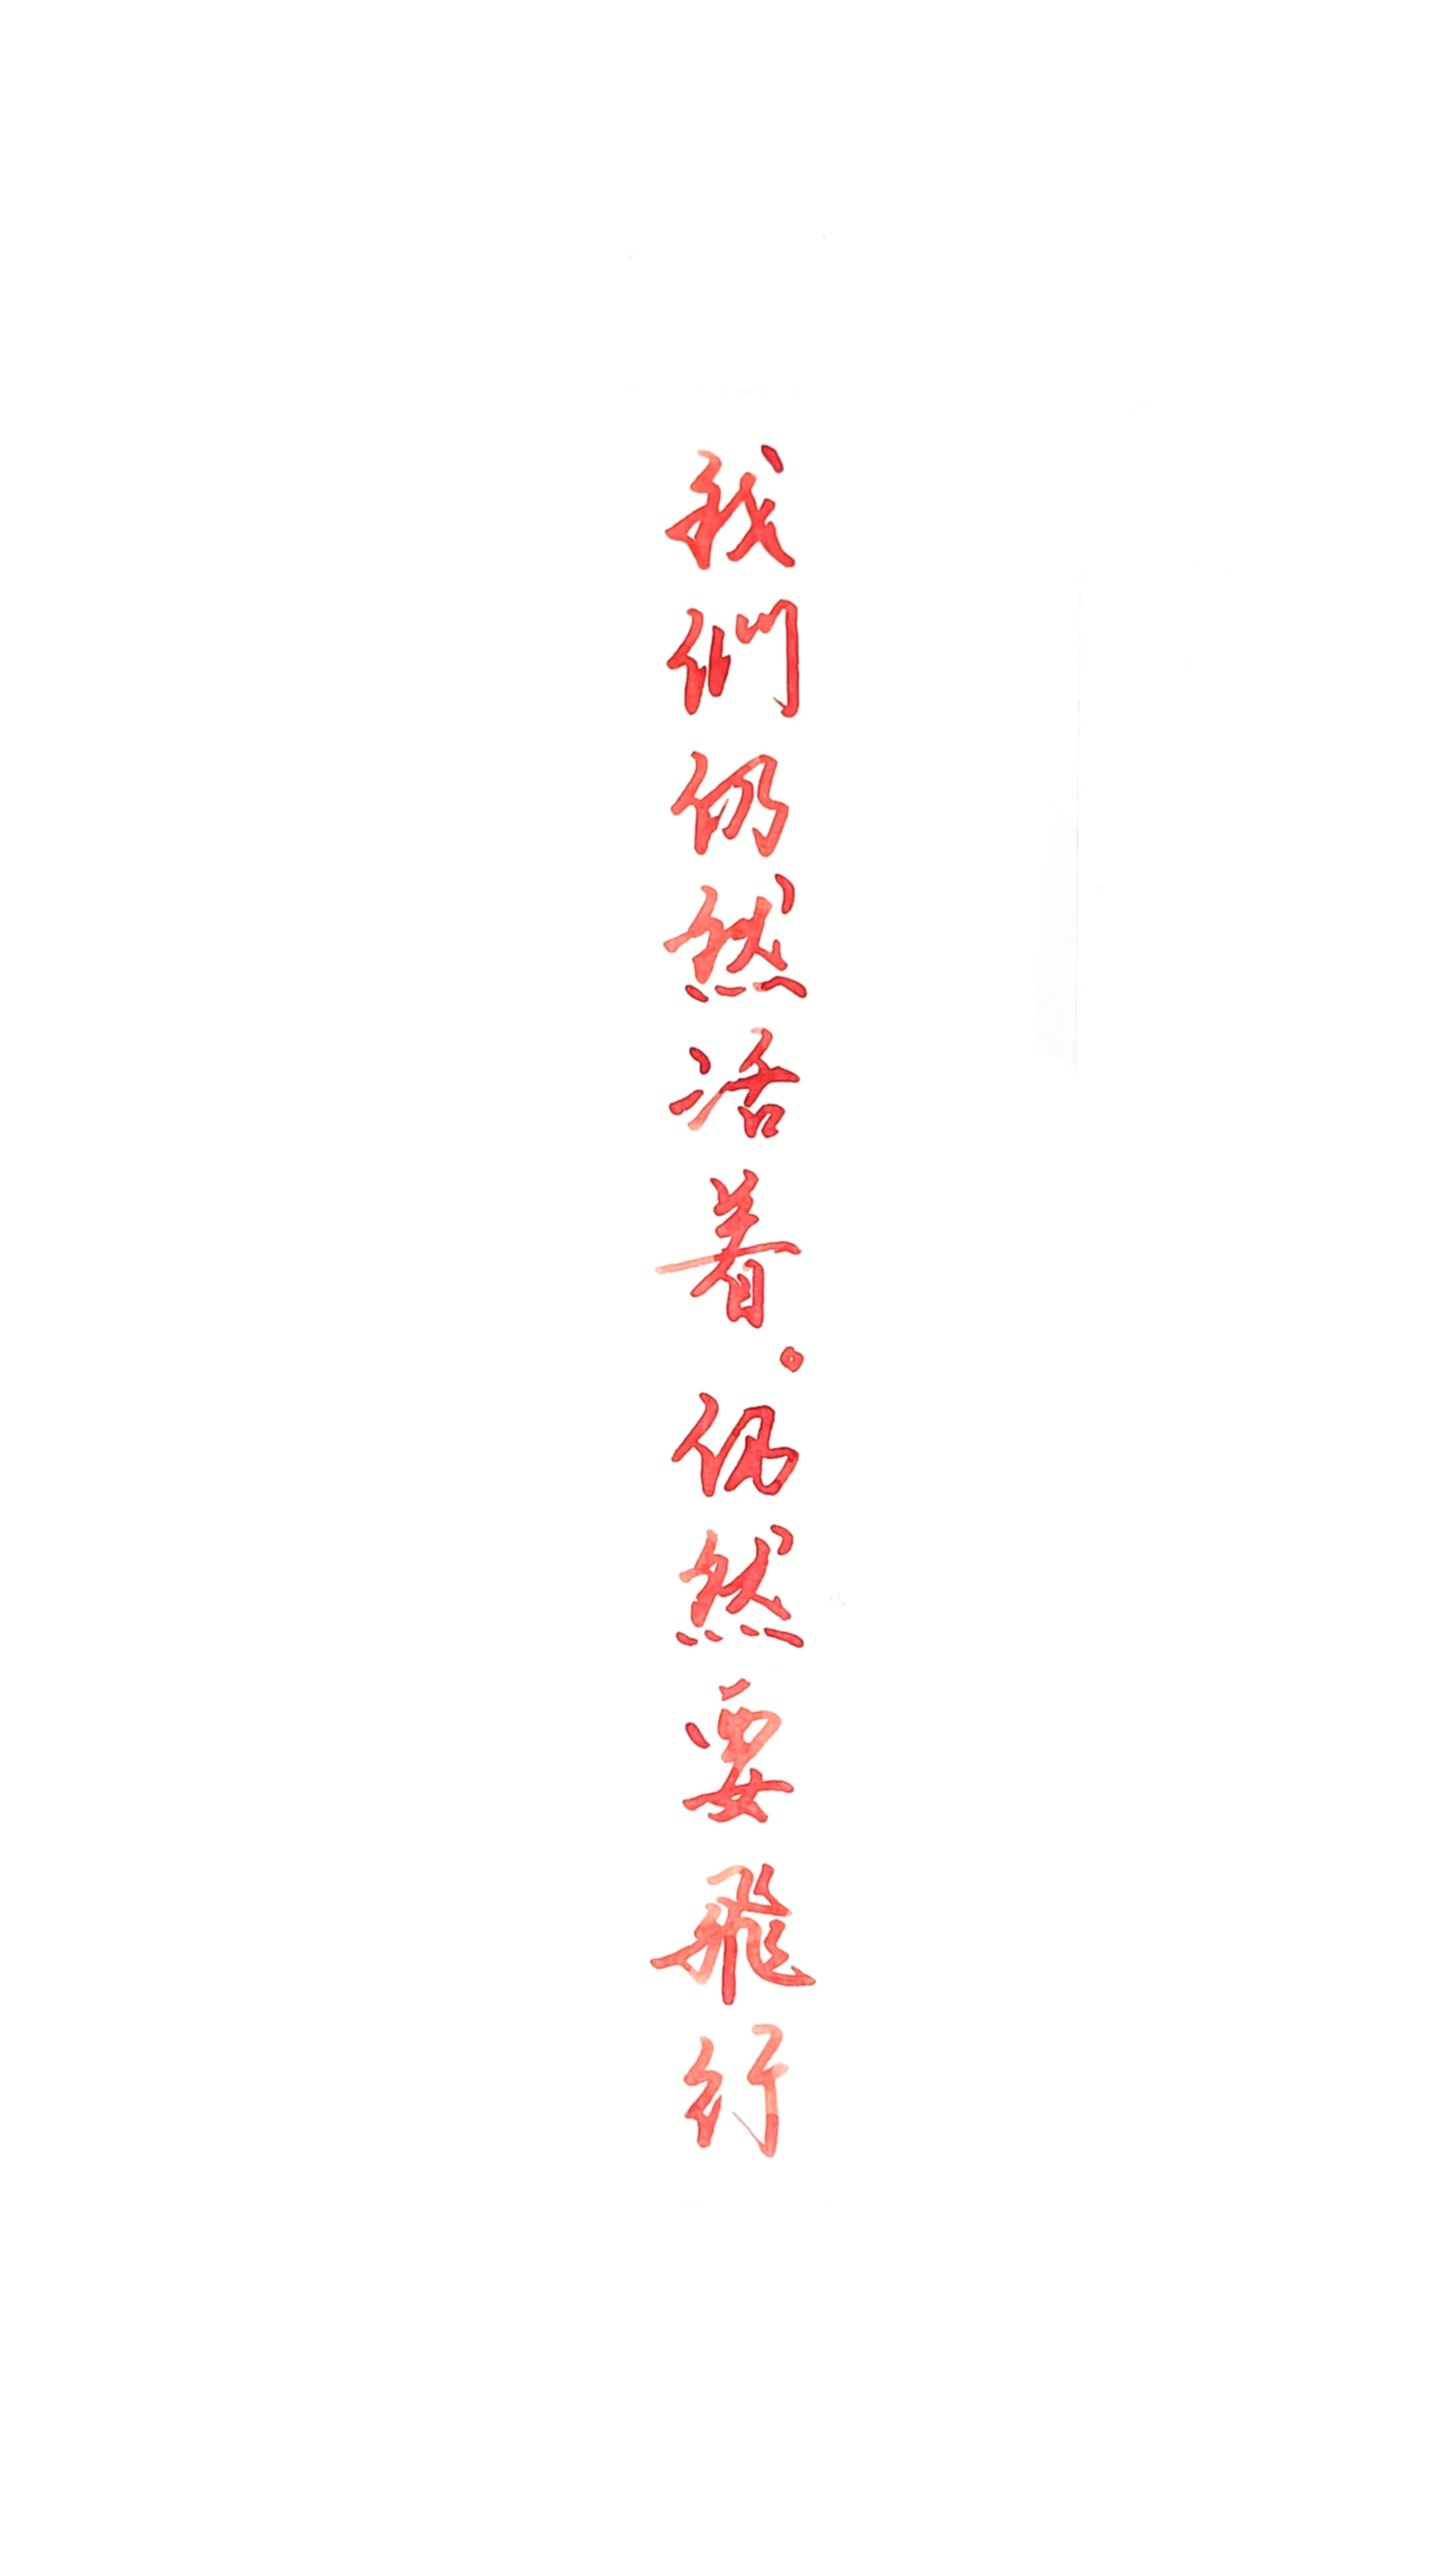 我們仍然活着。仍然要飛行